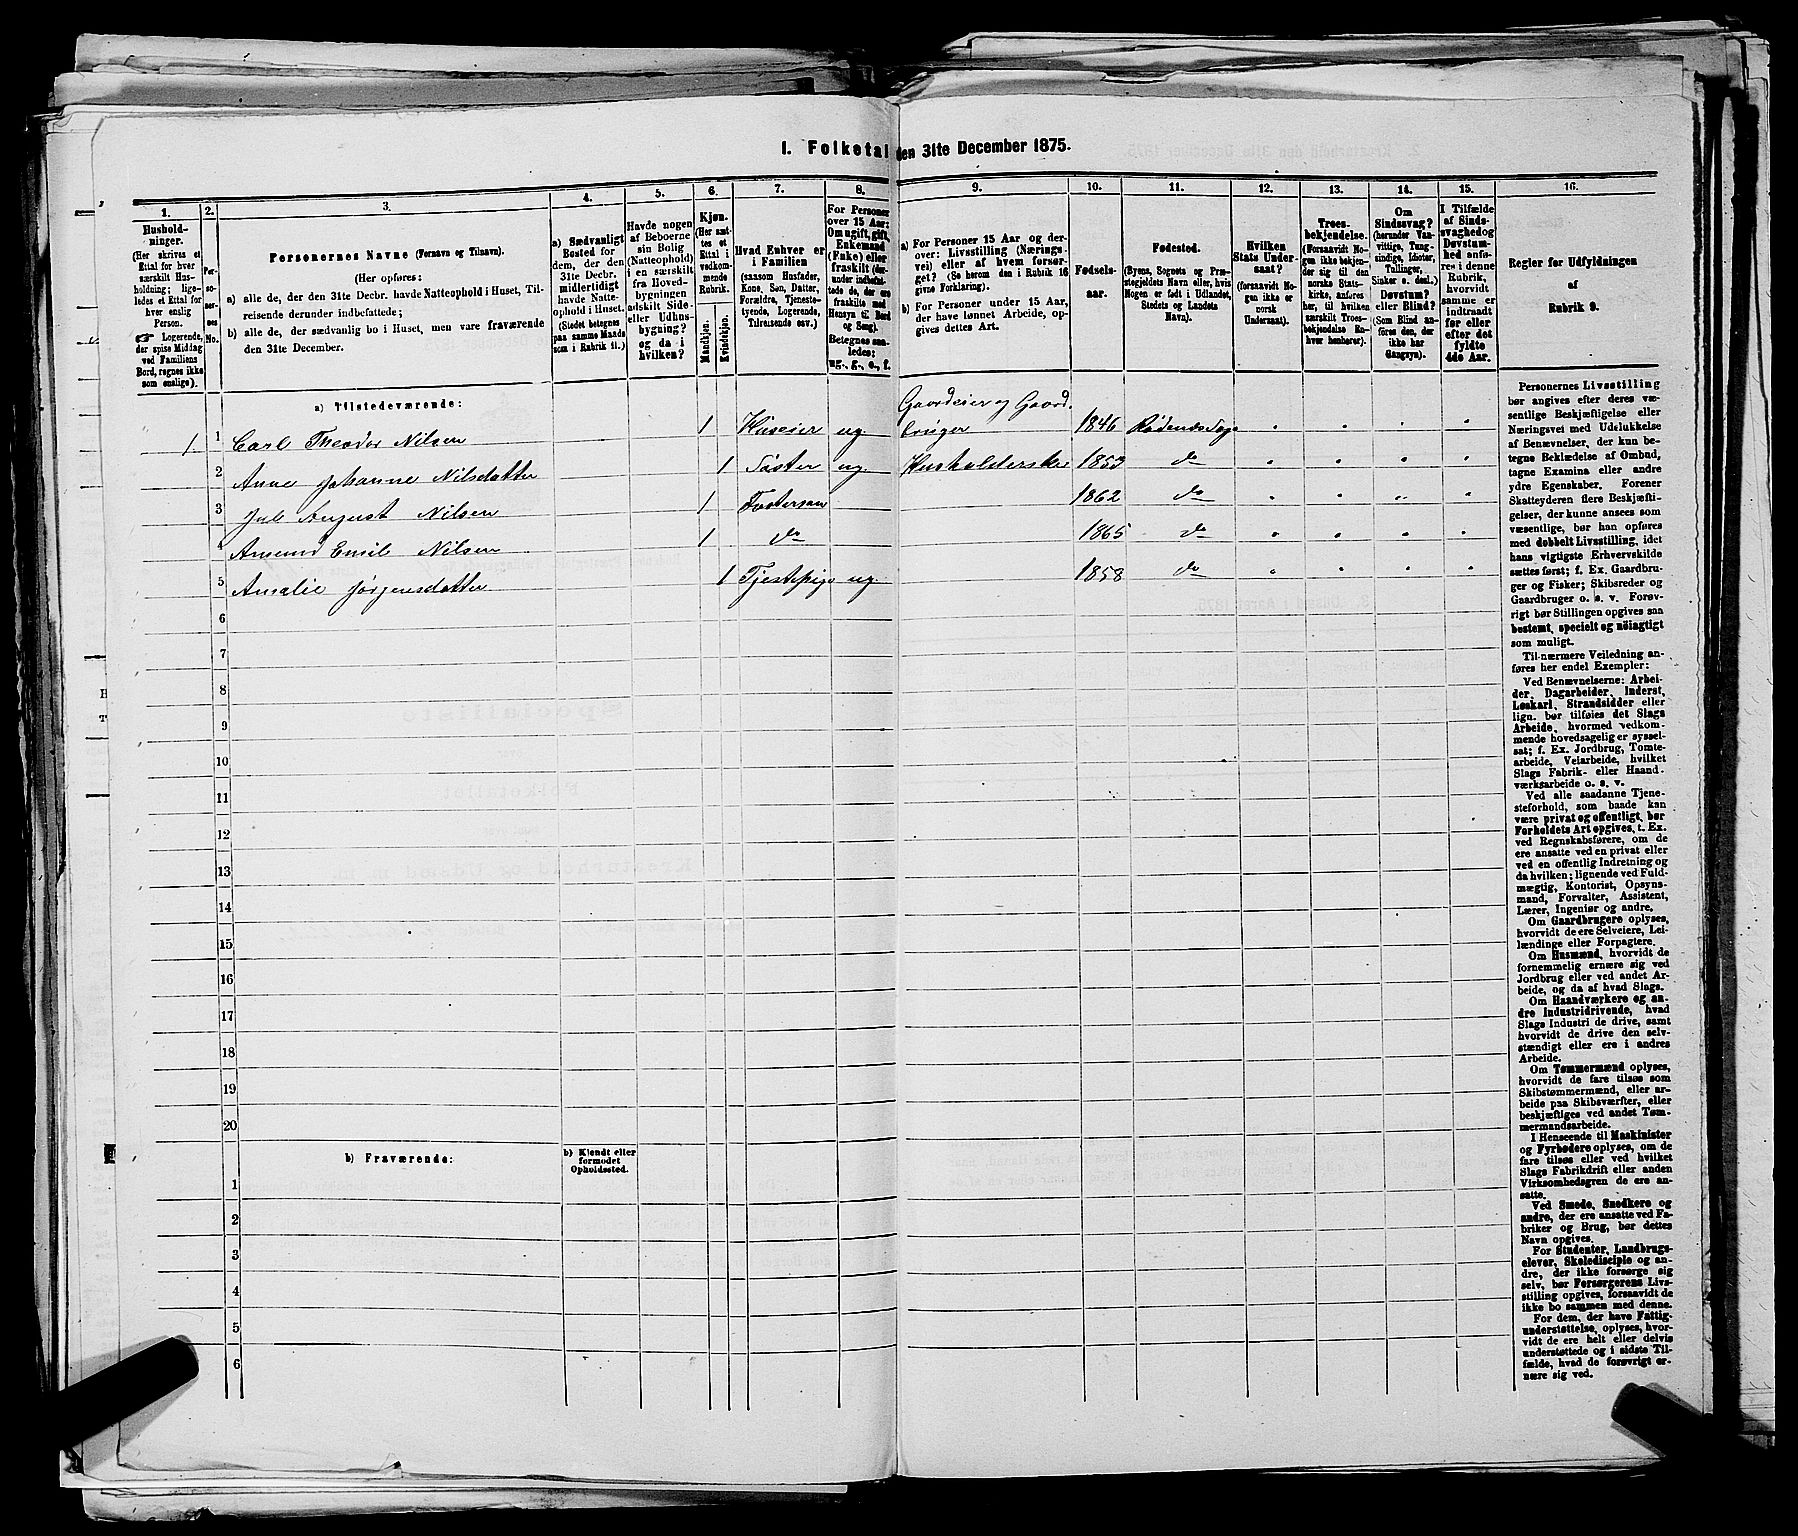 I. Folketal den 31te December 1875.
1. 2. 3. 4. 5. 6. 7. 8. 9. 10. 11. 12. 13. 14. 15. 16.
Husholdninger.
(Her skrives et
Ettal for hver
særskilt Husholdning;
ligeledes
et Ettal for
hver enslig
Person.
☛ Logerende,
der spise Middag
ved Familiens
Bord, regnes ikke
som enslige).
Personernes No.
Personernes Navne (Fornavn og Tilnavn).
(Her opføres:
a) alle de, der den 31te Decbr. havde Natteophold i Huset, Tilreisende
derunder indbefattede;
b) alle de, der sædvanlig bo i Huset, men vare fraværende
den 31te December.
a) Sædvanligt
Bosted for
dem, der den
31te Decbr.
midlertidigt
havde Natteophold
i Huset.
(Stedet betegnes
paa samme Maade
som i Rubrik 11.)
Havde nogen
af Beboerne
sin Bolig
(Natteophold)
i en særskilt
fra Hovedbygningen
adskilt Side-
eller Udhusbygning?
og da i
hvilken?
Kjøn.
(Her sættes
et
Ettal i
vedkommende
Rubrik.
Mandkjøn.
Kvindekjøn.
Hvad Enhver er
i Familien
(saasom Husfader,
Kone, Søn, Datter,
Forældre, Tjenestetyende,
Logerende,
Tilreisende osv.)
For Personer
over 15 Aar:
Om ugift, gift,
Enkemand
(Enke) eller
fraskilt (derunder
indbefattede
de, der ere
fraskilte med
Hensyn til Bord
og Seng).
Betegnes saaledes:
ug., g., e., f.
a) For Personer 15 Aar og derover:
Livsstilling (Næringsvei)
eller af hvem forsørget?
(Se herom den i Rubrik 16
givne Forklaring).
b) For Personer under 15 Aar,
der have lønnet Arbeide, opgives
dettes Art.
Fødselsaar.
Fødested.
(Byens, Sognets og Præstegjeldets
Navn eller, hvis
Nogen er født i Udlandet,
Stedets og Landets
Navn).
Hvilken
Stats Undersaat?
(forsaavidt Nogen
ikke er
norsk
Undersaat).
Troesbekjendelse.
(Forsaavidt Nogen
ikke bekjender
sig til den
norske Statskirke,
anføres
her, til hvilken
særskilt Troesbekjendelse
Enhver
henhører).
Om
Sindssvag?
(herunder Vanvittige,
Tungsindige,
Idioter,
Tullinger,
Sinker o. desl.)
Døvstum?
eller Blind?
(Som Blind anføres
den, der
ikke har
Gangsyn).
I Tilfælde
af Sindssvaghed
og
Døvstumhed
anføres
i denne
Rubrik,
hvorvidt
samme er
indtraadt
før eller
efter det
fyldte
4de Aar.
Regler for Udfyldningen
af
Rubrik 9.
a) Tilstedeværende:
Gaardeier og Gaard-
1. 1 Carl Theodor Nilsen 1 Huseier ug bruger 1846 Rødenæs Sogn
2 Anne Johanne Nilsdatter 1 Søster ug. Husholderske 1853 do
3 Jul August Nilsen 1 Fostersøn 1862 do
4 Amund Emil Nilsen 1 do 1865 do
5 Amalie Jørgensdatter 1 Tjestepige ug 1858 do
6
7
8
9
10
11
12
13
14
15
16
17
18
19
20
b) Fraværende:
b) Kjendt eller
formodet
Opholdssted.
1
2
3
4
5
6
Personernes Livsstilling
bør angives efter deres væsentlige
Beskjæftigelse eller
Næringsvei med Udelukkelse
af Benævnelser, der kun betegne
Beklædelse af Ombud,
tagne Examina eller andre
ydre Egenskaber. Forener
Skatteyderen flere Beskjæftigelser,
der kunne ansees som
væsentlige, bør han opføres
med dobbelt Livsstilling, idet
hans vigtigste Erhvervskilde
sættes først; f. Ex. Gaardbruger
og Fisker; Skibsreder og
Gaardbruger o. s. v. Forøvrigt
bør Stillingen opgives saa
bestemt, specielt og nöiagtigt
som muligt.
Til nærmere Veiledning anføres
her endel Exempler:
Ved Benævnelserne: Arbeider,
Dagarbeider, Inderst,
Løskarl, Strandsidder eller
lign. bør tilføies det Slags
Arbeide, hvormed vedkommende
hovedsagelig er sysselsat;
f. Ex. Jordbrug, Tomtearbeide,
Veiarbeide, hvilket
Slags Fabrik- eller Haandværksarbeide
o. s. v.
Ved alle saadanne Tjenesteforhold,
som baade kan
være privat og offentligt, bør
Forholdets Art opgives, t. Ex.
ved Regnskabsførere, om de
ere ansatte ved en privat eller
ved en offentlig Indretning og
da hvilken; lignende ved Fuldmægtig,
Kontorist, Opsynsmand,
Forvalter, Assistent,
Lærer, Ingeniør og andre.
Om Gaardbrugere oplyses,
hvorvidt de ere Selveiere, Leilændinge
eller Forpagtere.
Om Husmænd, hvorvidt de
fornemmelig ernære sig ved
Jordbrug eller ved andet Arbeide,
og da af hvad Slags.
Om Haandværkere og andre
Industridrivende, hvad
Slags Industri de drive, samt
hvorvidt de drive den selvstændigt
eller ere i andres
Arbeide.
Om Tømmermænd oplyses,
hvorvidt de fare tilsøs som
Skibstømmermænd, eller arbeide
paa Skibsværfter, eller
beskjæftiges ved andet Tømmermandsarbeide.
I Henseende til Maskinister
og Fyrbødere oplyses, om de
fare tilsøs eller ved hvilket
Slags Fabrikdrift eller anden
Virksomhedsgren de ere ansatte.
Ved Smede, Snedkere og
andre, der ere ansatte ved Fabriker
og Brug, bør dettes
Navn opgives.
For Studenter, Landbrugselever,
Skoledisciple og andre,
der ikke forsørge sig
selv, bør Forsørgerens Livsstilling
opgives, forsaavidt de
ikke bo sammen med denne.
For dem, der have Fattigunderstøttelse,
oplyses, hvorvidt
de ere helt eller delvis
understøttede og i sidste Tilfælde,
hvad de forøvrigt ernære
sig ved.